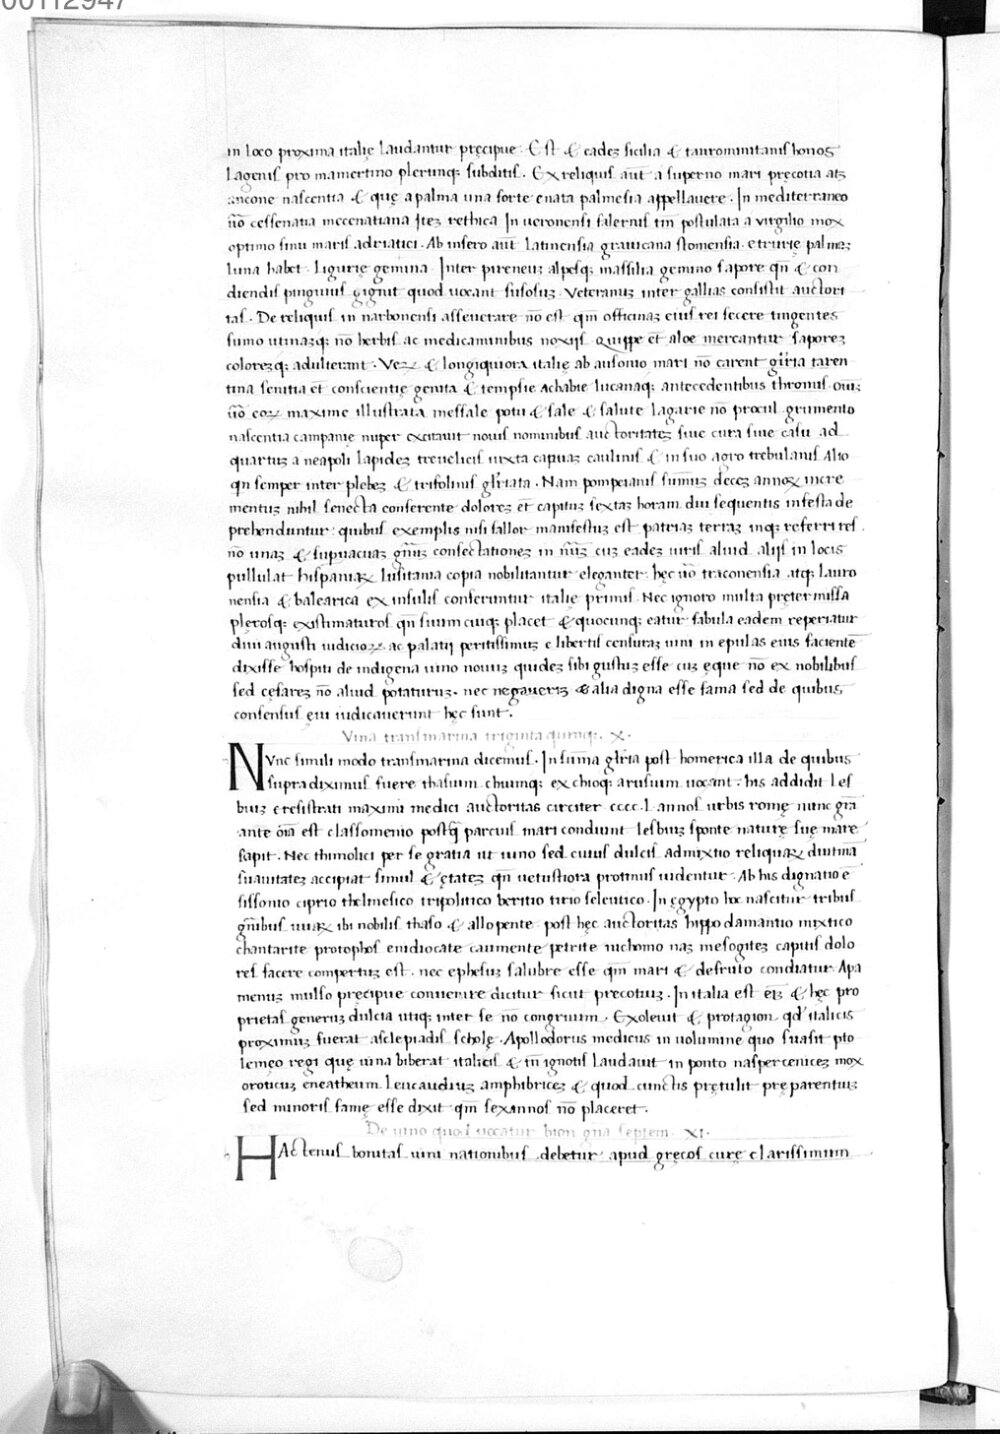 00112947
in loco proxima italię laudantur pręcipue. Est & eadeʒ sicilia & taurominitanis honos
lagenis pro mamertino plerunqʒ subditis. Ex reliquis aut̄ a supero mari pręcotia atqʒ
ancone nascentia & quę a palma una forte enata palmesia appellauere. In mediterraneo
ūo cessenatia mecenatiana iteʒ rethica In ueronensi falernis tm̄ postulata a virgilio mox
optimo sinu maris adriatici. Ab infero aut̄ latinensia grauicana stomensia. etrurię palmaʒ
luna habet. ligurię gemina Inter pireneuʒ alpesqʒ massilia gemino sapore qn̄ & con
diendis pinguius gignit quod uocant susosuʒ. Veteranuʒ inter gallias consistit auctori
tas. De reliquis in narbonensi asseuerare nō est qm̄ officinaʒ eius rei fecere tingentes
fumo utinaʒqʒ nō herbis ac medicaminibus noxijs quippe et̄ aloe mercantur saporeʒ
coloreʒqʒ adulterant. Veʀ & longiquiora italię ab ausonio mari nō carent gl̄ria taren
tina seruitia et̄ conscientię genita & tempsie Achabie lucanaqʒ antecedentibus thronis. Oīuʒ
ūo eoʀ maxime illustrata messale potu & sale & salute lagarie nō procul grumento
nascentia campanie nuper excitauit nouis nominibus auctoritateʒ siue cura siue casu ad
quartuʒ a neapoli lapideʒ treuelicis iuxta capuaʒ caulinis & in suo agro trebulanis Alio
qn semper inter plebeʒ & trifolinis gl̄riata. Nam pompeianis sum̄uʒ deceʒ annoʀ incre
mentuʒ nihil senecta conferente doloreʒ et̄ capitis sextaʒ horam diu sequentis infesta de
prehenduntur quibus exemplis nisi fallor manifestuʒ est patriaʒ terraʒ inqʒ referri ref
nō uuaʒ & superuacuaʒ gn̄uʒ consectationeʒ in nūʒ cuʒ eadeʒ uitis aliud alijs in locis
pullulat hispaniaʀ lusitania copia nobilitantur eleganter hęc ūo traconensia atqʒ lauro
nensia & balearica ex insulis conferuntur italię primis. Nec ignoro multa pretermissa
plęrosqʒ existimaturos qn suum cuiqʒ placet & quocunqʒ eatur fabula eadem reperiatur
diui augusti iudicioʀ ac palatij peritissimuʒ e libertis censuraʒ uini in epulas eius facientē
dixisse hospiti de indigena uino nouuʒ quideʒ sibi gustuʒ esse cuʒ eque nō ex nobilibus
sed cęsareʒ nō aliud potaturuʒ. nec negaueriʒ & alia digna esse fama sed de quibus
consensus ęui iudicauerunt hęc sunt.
Vina transmarina triginta quinqʒ. X.
NVnc simili modo transmarina dicemus. In sum̄a gl̄ria post homerica illa de quibus
supra diximus fuere thasium chiumqʒ ex chioqʒ arusium uocant. his addidit les
biuʒ eresistrati maximi medici auctoritas circiter cccc.l. annos urbis romę nunc grā
ante oīa est classomenio postq̄ parcius mari condiunt lesbiuʒ sponte naturę suę mare
sapit. Nec thimolici per se gratia ut uino sed cuius dulcis admixtio reliquaʀ diutinā
suauitateʒ accipiat simul & ętateʒ qn̄ uetustiora protinus uidentur. Ab his dignatio ē
sissonio ciprio thelmesico tripolitico beritio tirio seleutico. In ęgypto hoc nascitur tribus
gn̄ibus uuaʀ ibi nobilis thaso & allopente post hęc auctoritas hippodamantio mixtico
chantarite protophos enidiocate caumente petrite nichomo naʒ mesogiteʒ capitis dolo
res facere compertuʒ est. nec ephesuʒ salubre esse qm̄ mari & defruto condiatur Apa
menuʒ mulso pręcipue conuenire dicitur sicut precotiuʒ. In italia est et̄ʒ & hęc pro
prietas generuʒ dulcia utiqʒ inter se nō congruum. Exoleuit & protagion qd̄ italicis
proximuʒ fuerat asclepiadis scholę. Apollodorus medicus in uolumine quo suasit pto
lemęo regi quę uina biberat italicis & tn̄ ignotis laudauit in ponto nasperceniteʒ mox
oroticuʒ eneatheum. leucaudiuʒ amphibriceʒ & quod cunctis prętulit preparentiuʒ
sed minoris famę esse dixit qm̄ sexannos nō placeret.
De uino quod uocatur bion gn̄a septem. XI.
HActenus bonitas uini nationibus debetur apud gręcos curę clarissimum